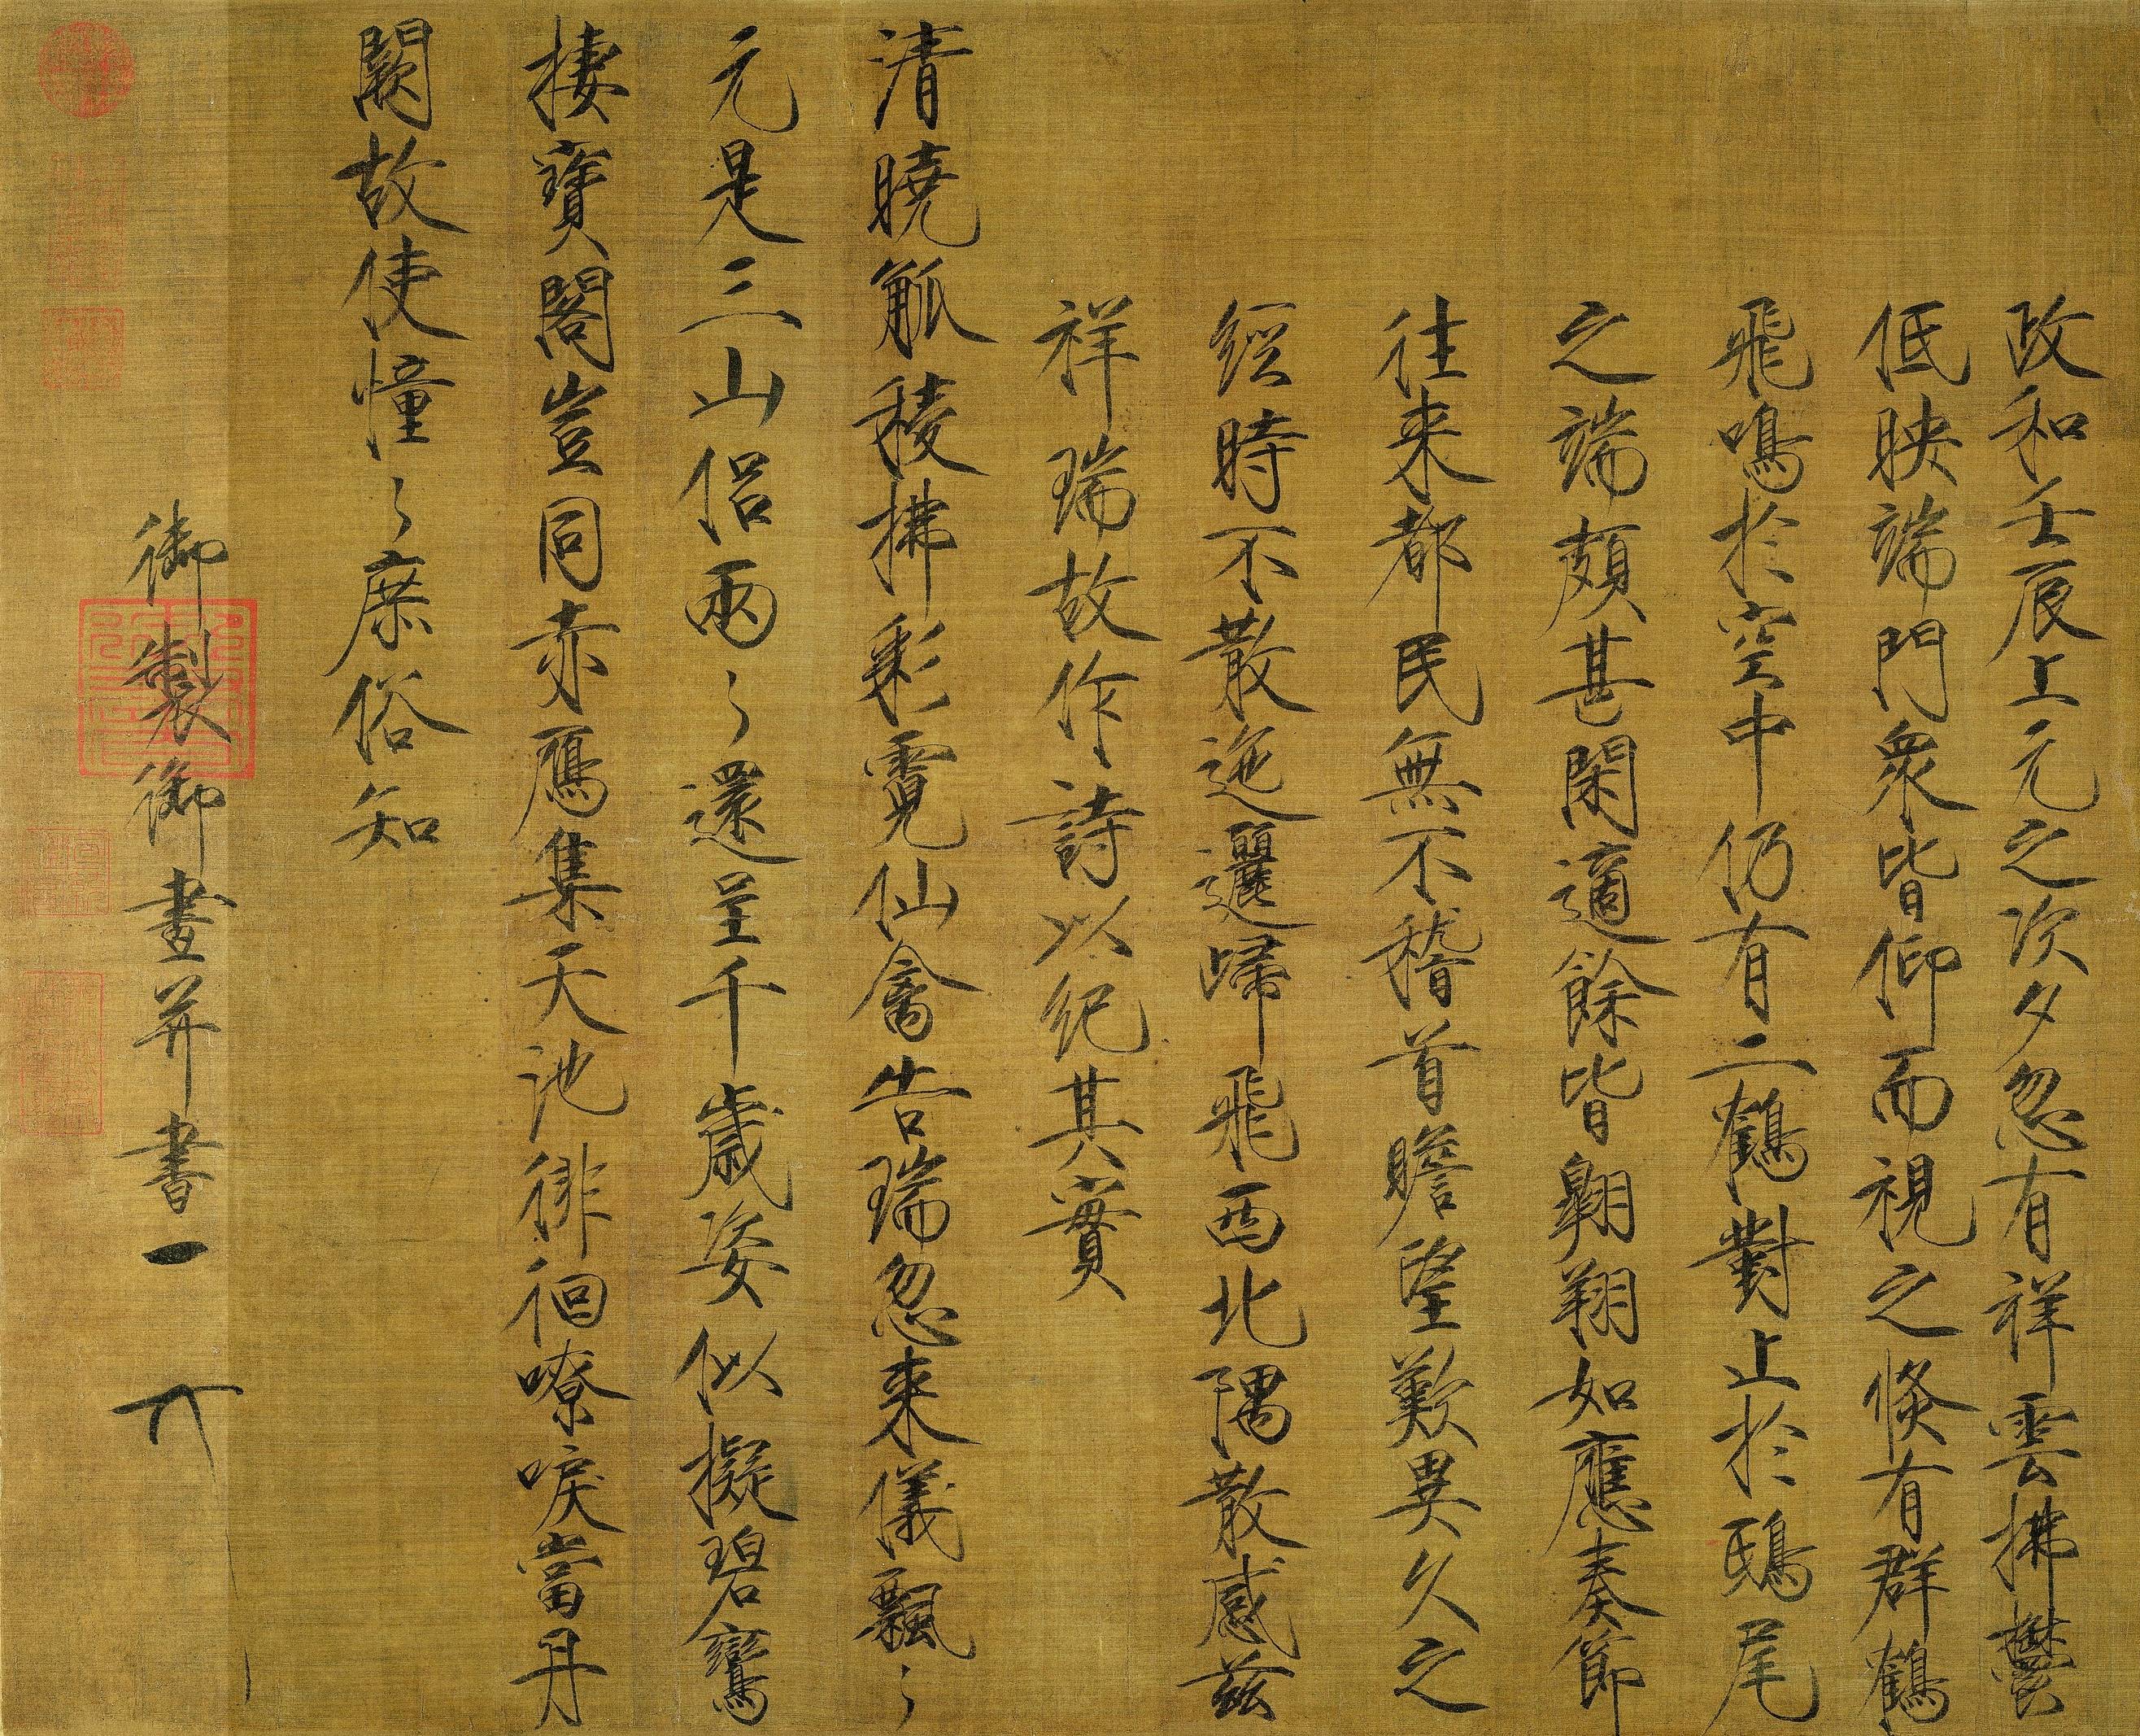 政和壬辰上元之次夕忽有祥雲拂鬱
低映端門衆皆仰而視之倐有群鶴
飛鳴於空中仍有二鶴對止於鴟尾
之端頗甚閑適餘皆翱翔如應奏節
往来都民無不稽首瞻望歎異久之
經時不散迤邐歸飛西北隅散感茲
祥瑞故作詩以紀其實
清曉觚稜拂彩霓仙禽告瑞忽来儀飄〻
元是三山侶兩〻還呈千歲姿似擬碧鸞
棲寶閣豈同赤鴈集天池徘徊嘹唳當丹
闕故使憧〻庶俗知
御製御畫并書